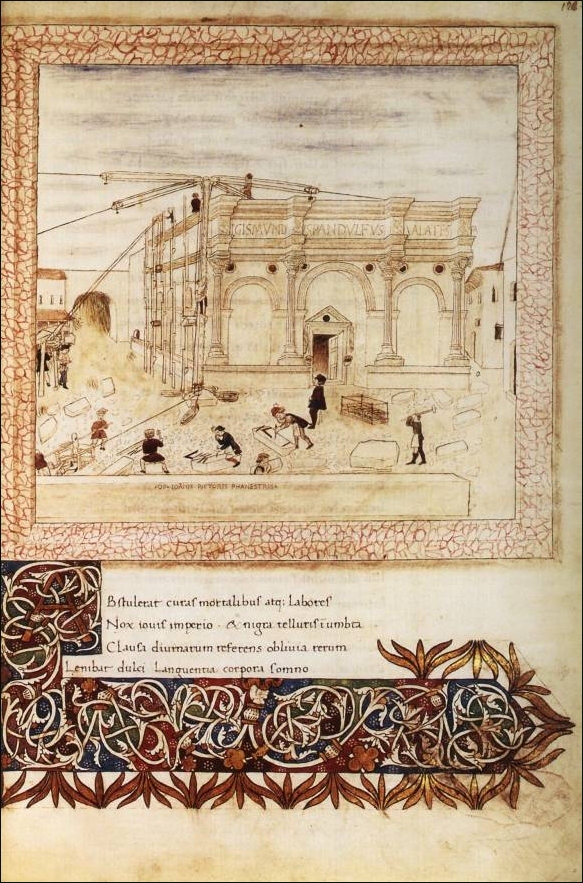 126
SIGISMVNDVS PANDVLFVS MALATES
OP IOANIS PICTORIS PHANESTRIS
Abstulerat curas mortalibus atq; labores
Nox iouis imperio · & nigra telluris ī umbra
Clausa diurnarum referens obliuia rerum
Lenibat dulci languentia corpora somno